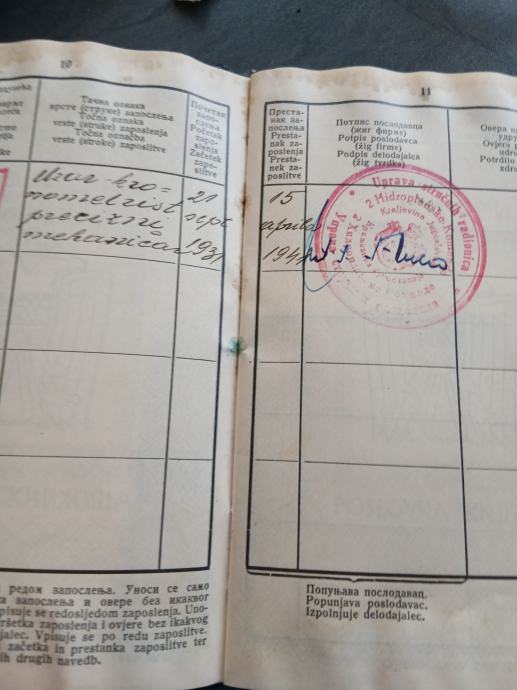 10
Тачна ознака
врсте (струке) запослења
Točna oznaka
vrste (struke) zaposlenja
Točna označba
vrste (stroke) zaposlitve
Почетак
запо-
слења
Početak
zapo-
slenja
Začetek
zapo-
slitve
precizni
mehaničar
21
sept
1931
редом запослења. Уноси се само
запослења и овере без икаквог
pisuje se redosljedom zaposlenja. Uno-
vršetka zaposlenja i ovjere bez ikakvog
jalec. Vpisuje se po redu zaposlitve.
začetka in prestanka zaposlitve ter
ih drugih navedb.
11
Преста-
нак за-
послења
Presta-
nak za-
poslenja
Presta-
nek za-
poslitve
Потпис послодавца
(жиг фирме)
Potpis poslodavca
(žig firme)
Podpis delodajalca
(žig tvrdke)
Овера
Ovjera
Potrdilo
15
aprila
Uprava stručnih radionica
2 Hidroplanske Komande
Kraljevine Jugoslavije
Попуњава послодавац.
Popunjava poslodavac.
Izpolnjuje delodajalec.